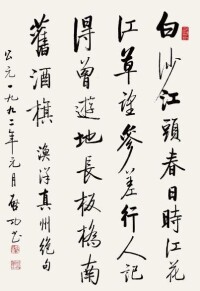 白沙江頭春日時江花
江草望參差行人記
得曾遊地長板橋南
舊酒旗 漁洋真州絕句
公元一九九二年元月啓功書